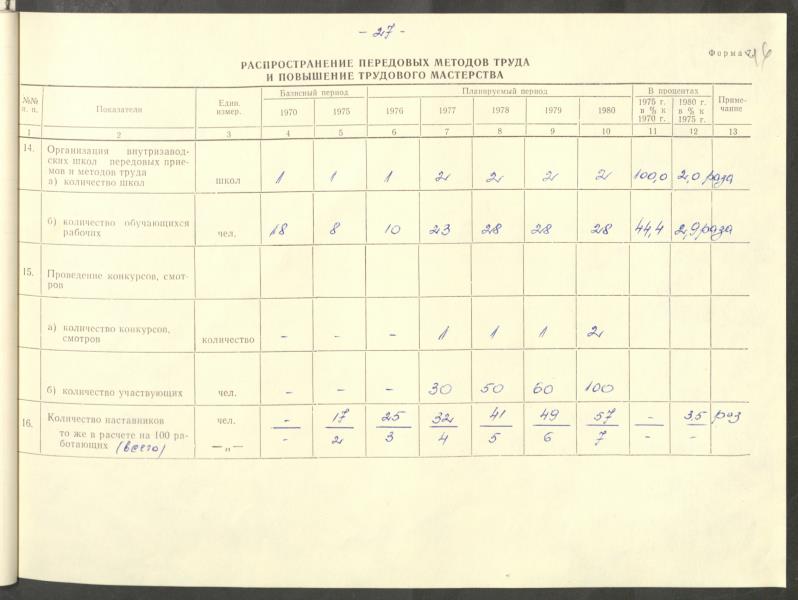 - 27 -
Форма 26
РАСПРОСТРАНЕНИЕ ПЕРЕДОВЫХ МЕТОДОВ ТРУДА
И ПОВЫШЕНИЕ ТРУДОВОГО МАСТЕРСТВА
№№ п. п. Показатели Един. измер. Базисный период Планируемый период В процентах Приме-чание
1970 1975 1976 1977 1978 1979 1980 1975 г. в % к 1970 г. 1980 г. в % к 1975 г.
1 2 3 4 5 6 7 8 9 10 11 12 13
14. Организация внутризавод-
ских школ передовых прие-
мов и методов труда
а) количество школ школ 1 1 1 2 2 2 2 100,0 2,0 раза
б) количество обучающихся
рабочих чел. 18 8 10 23 28 28 28 44,4 2,9 раза
15. Проведение конкурсов, смот-
ров
а) количество конкурсов,
смотров количество - - - 1 1 1 2
б) количество участвующих чел. - - - 30 50 60 100
16. Количество наставников чел. - 17 25 32 41 49 57 - 3,5 раз
то же в расчете на 100 ра-
ботающих (всего) —„— - 2 3 4 5 6 7 - -